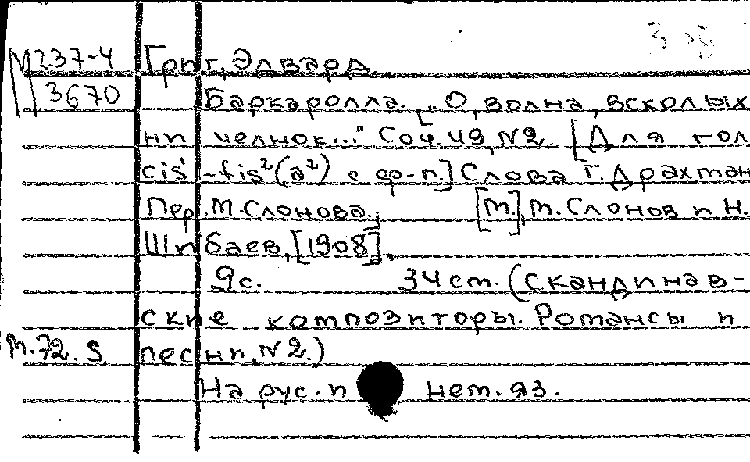 М237-4 Григ, Эдвард.
3670
Баркаролла. ["О, волна, всколых
ни челнок..." Соч. 49, №2. [Для гол
cis' -fis²(a²) с ф-п.] Слова Г. Драхман
Пер. М. Слонова. [М.], М. Слонов и Н.
Шибаев, [1908].
9с. 34 см. (Скандинав-
ские композиторы. Романсы и
М.72.S песни, №2)
На рус. и нем. яз.